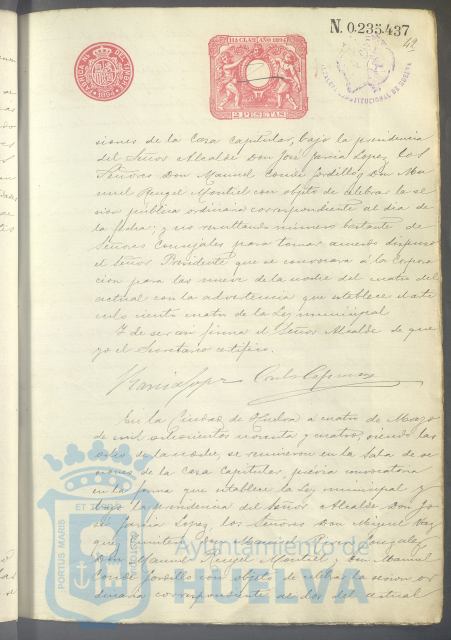 N. 0.235.437
42
HA CLASE AÑO 1894
2 PESETAS
siones de la Casa Capitular, bajo la presidencia
del Señor Alcalde Don José García Lopez los
Señores Don Manuel Conde Jordillo, Don Ma
nuel Rengel Montiel con objeto de celebrar la se
sion pública ordinaria correspondiente al dia de
la fecha; y no resultando número bastante de
Señores Concejales para tomar acuerdo dispuso
el Señor Presidente que se convocara á la Corpora
cion para las nueve de la noche del cuatro del
actual con la advertencia que establece el arti
culo ciento cuatro de la Ley municipal
Y de ser así firma el Señor Alcalde de que
yo el Secretario certifico.
García Lopez
En la Ciudad de Huelva á cuatro de Marzo
de mil ochocientos noventa y cuatro, siendo las
de la noche, se reunieron en la Sala de se
siones de la Casa Capitular, previa convocatoria
en la forma que establece la Ley municipal y
bajo la presidencia del Señor Alcalde Don Jo
sé García Lopez, los Señores Don Miguel Vaz
quez Don Manuel Gonzalez
Don Manuel Rengel Montiel y Don Manuel
Conde Jordillo con objeto de celebrar la sesion or
dinaria correspondiente al dos del actual
PORTUS MARIS
ET TERRE
CUSTODIA
Ayuntamiento de
HUELVA